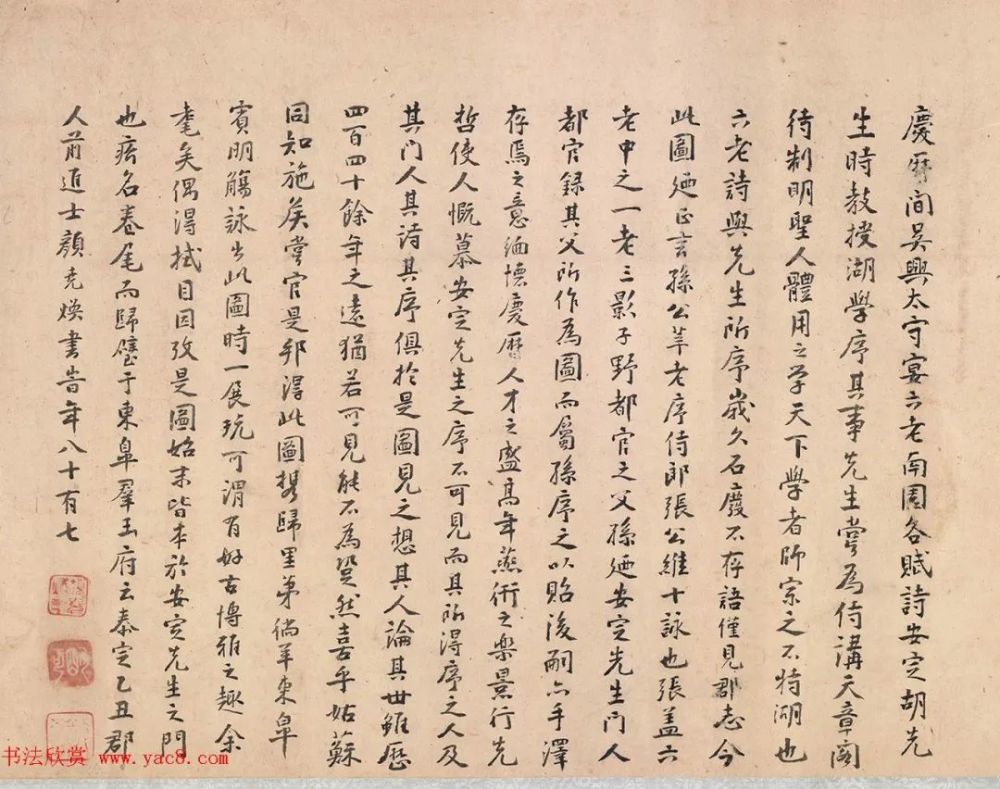 慶曆間吳興太守宴六老南園各賦詩安定胡先
生時教授湖學序其事先生嘗為侍講天章閣
待制明聖人體用之學天下學者師宗之不特湖也
六老詩與先生所序歲久石廢不存語僅見郡志今
此圖迺正言孫公莘老序侍郎張公維十詠也張蓋六
老中之一老三影子野都官之父孫迺安定先生門人
都官錄其父所作為圖而屬孫序之以貽後嗣亦手澤
存焉之意緬懷慶曆人才之盛高年燕衎之樂景行先
哲使人慨慕安定先生之序不可見而其所得序之人及
其門人其詩其序俱於是圖見之想其人論其世雖歷
四百四十餘年之遠猶若可見能不為興然喜乎姑蘇
同知施侯嘗官是邦得此圖携歸里第徜羊東皐
賓明觴詠出此圖時一展玩可謂有好古博雅之趣余
耄矣偶得拭目因攷是圖始末皆本於安定先生之門
也㾗名卷尾而歸璧于東皐羣玉府云泰定乙丑郡
人前進士顏堯煥書旹年八十有七
书法欣赏 www.yac8.com